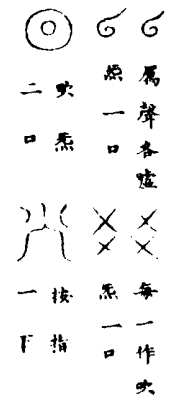 厲聲各噓
炁一口
吹炁
二口
每一作吹
炁一口
按指
一下